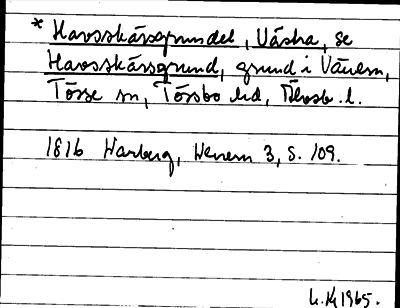 * Havsskärsgrundet, Västra, se
Havsskärsgrund, grund i Vänern,
Tösse sn, Tössbo hd, Älvsb. l.
1816 Warberg, Wenern 3, S. 109.
1965.